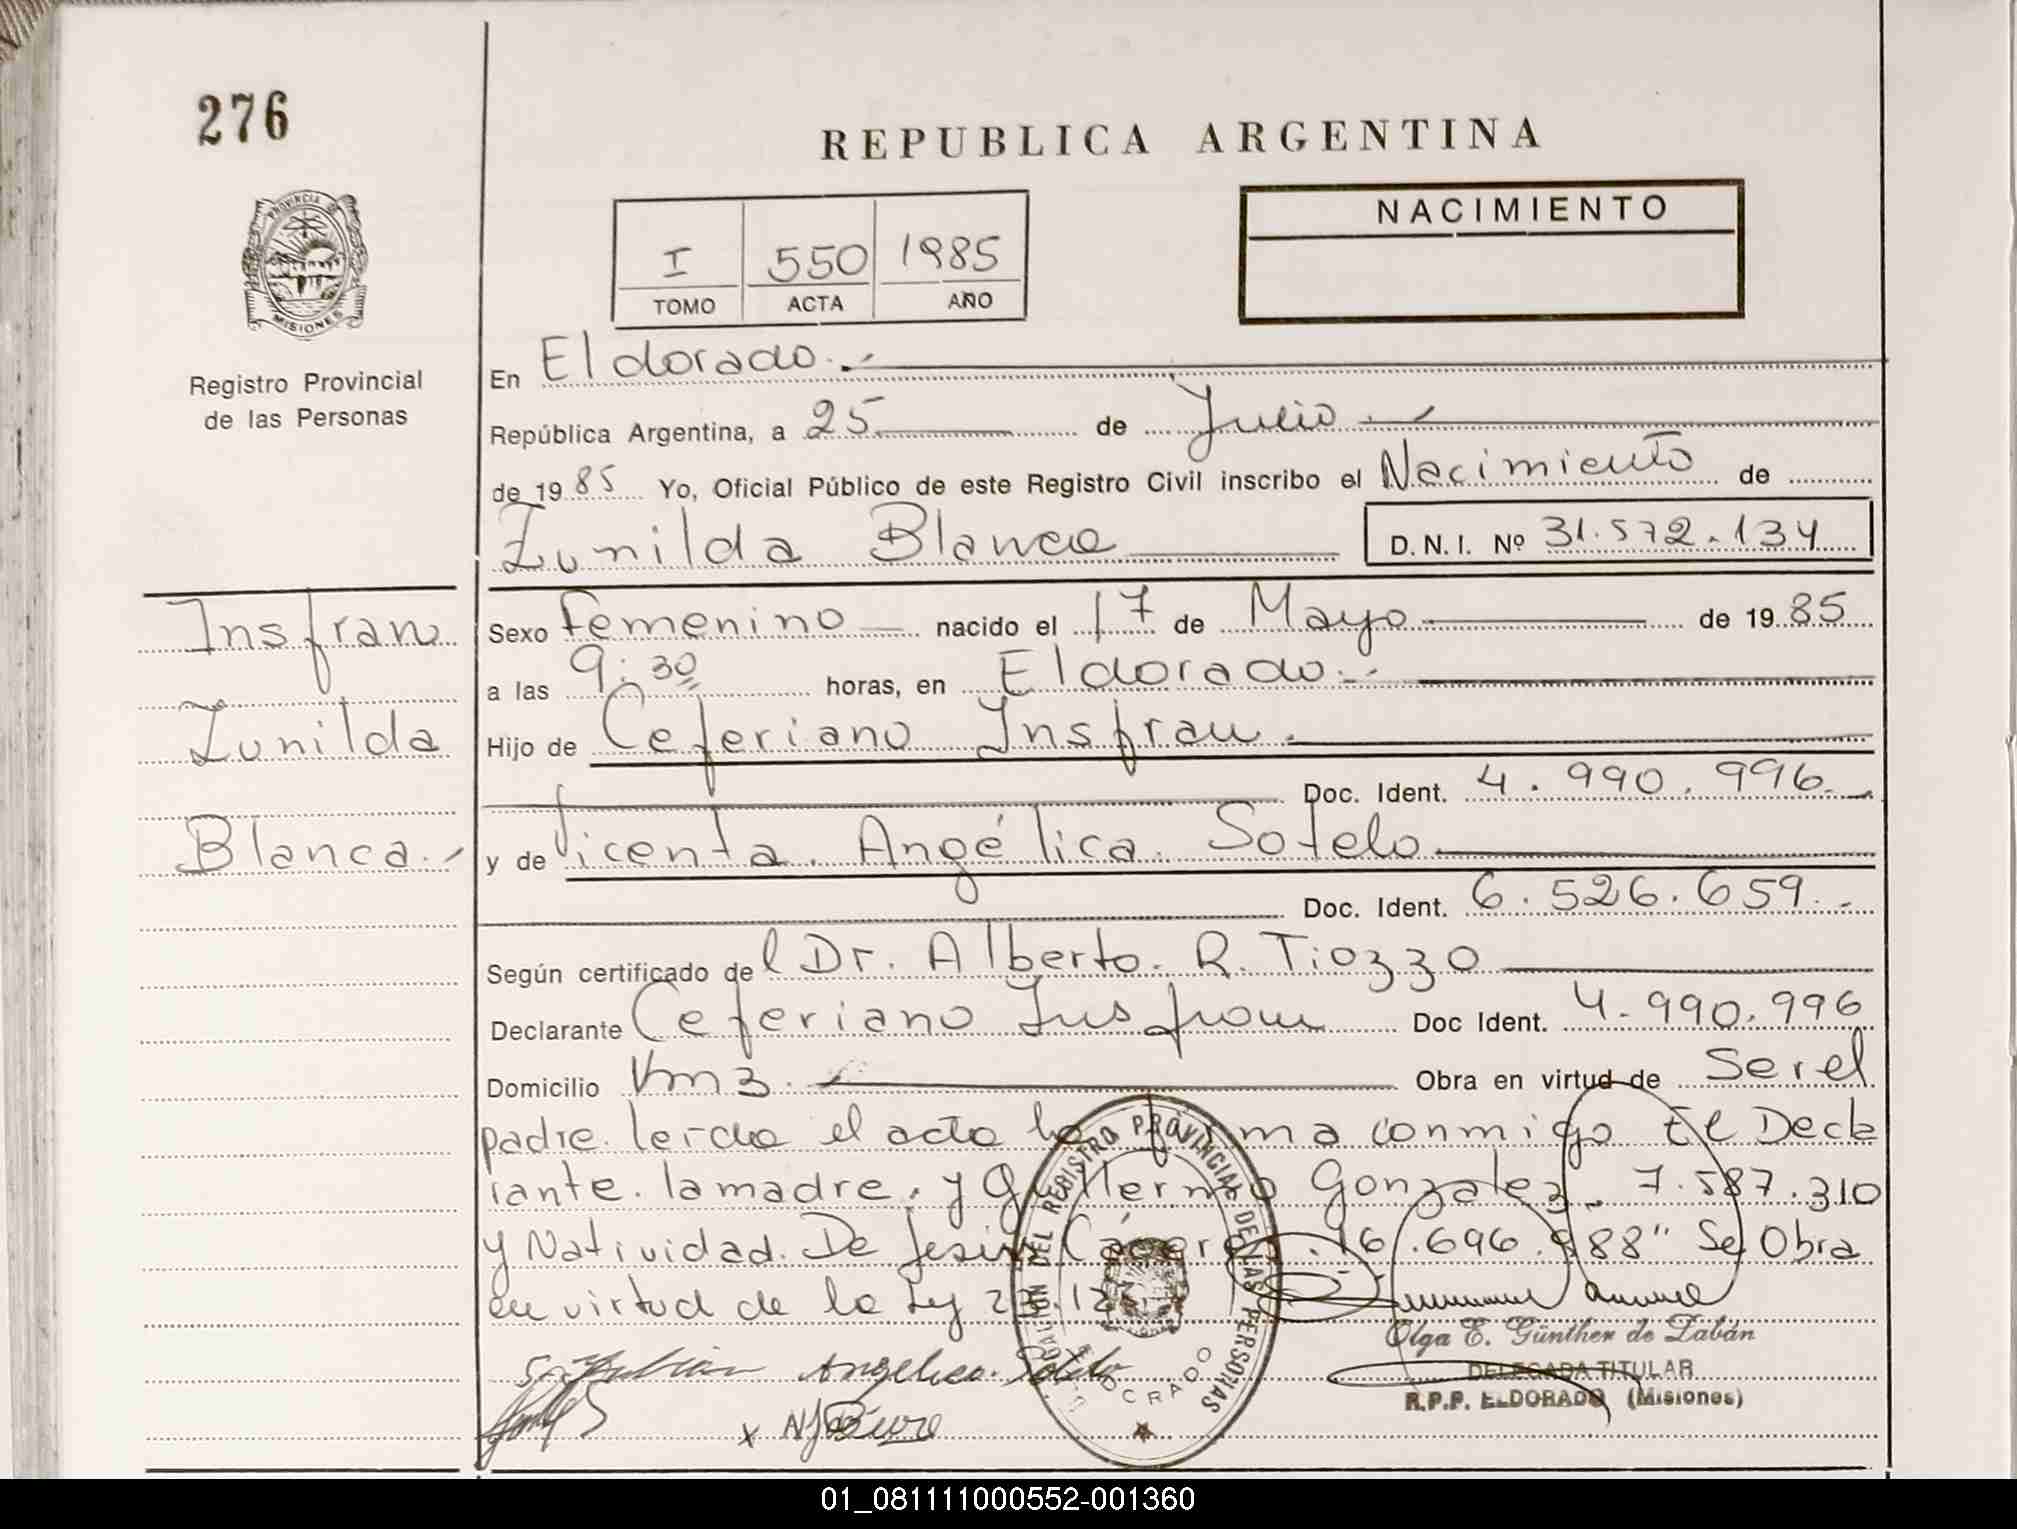 276
REPUBLICA ARGENTINA
PROVINCIA DE
MISIONES
Registro Provincial
de las Personas
I 550 1985
TOMO ACTA AÑO
NACIMIENTO
En Eldorado.-
República Argentina, a 25 de Julio
de 1985 Yo, Oficial Público de este Registro Civil inscribo el Nacimiento de
Zunilda Blanca D.N.I. Nº 31.572.134
Insfran
Zunilda
Blanca.-
Sexo Femenino nacido el 17 de Mayo de 1985
a las 9:30 horas, en Eldorado.-
Hijo de Ceferiano Insfran.
Doc. Ident. 4.990.996.-
y de Vicenta. Angélica. Sotelo
Doc. Ident. 6.526.659.-
Según certificado del Dr. Alberto. R. Tiozzo
Declarante Ceferiano Insfran Doc Ident. 4.990.996
Domicilio Km 3. Obra en virtud de Ser el
padre. leida el acta la firma conmigo El Decla
rante. la madre. y Guillermo Gonzalez. 7.587.310
y Natividad. De Jesús Cáceres. 16.696.988" Se Obra
en virtud de la Ley
Angelica. Sotelo
DELEGACION DEL REGISTRO PROVINCIAL DE LAS PERSONAS
ELDORADO
Olga E. Günther de Zabán
DELEGADA TITULAR
R.P.P. ELDORADO (Misiones)
01_081111000552-001360